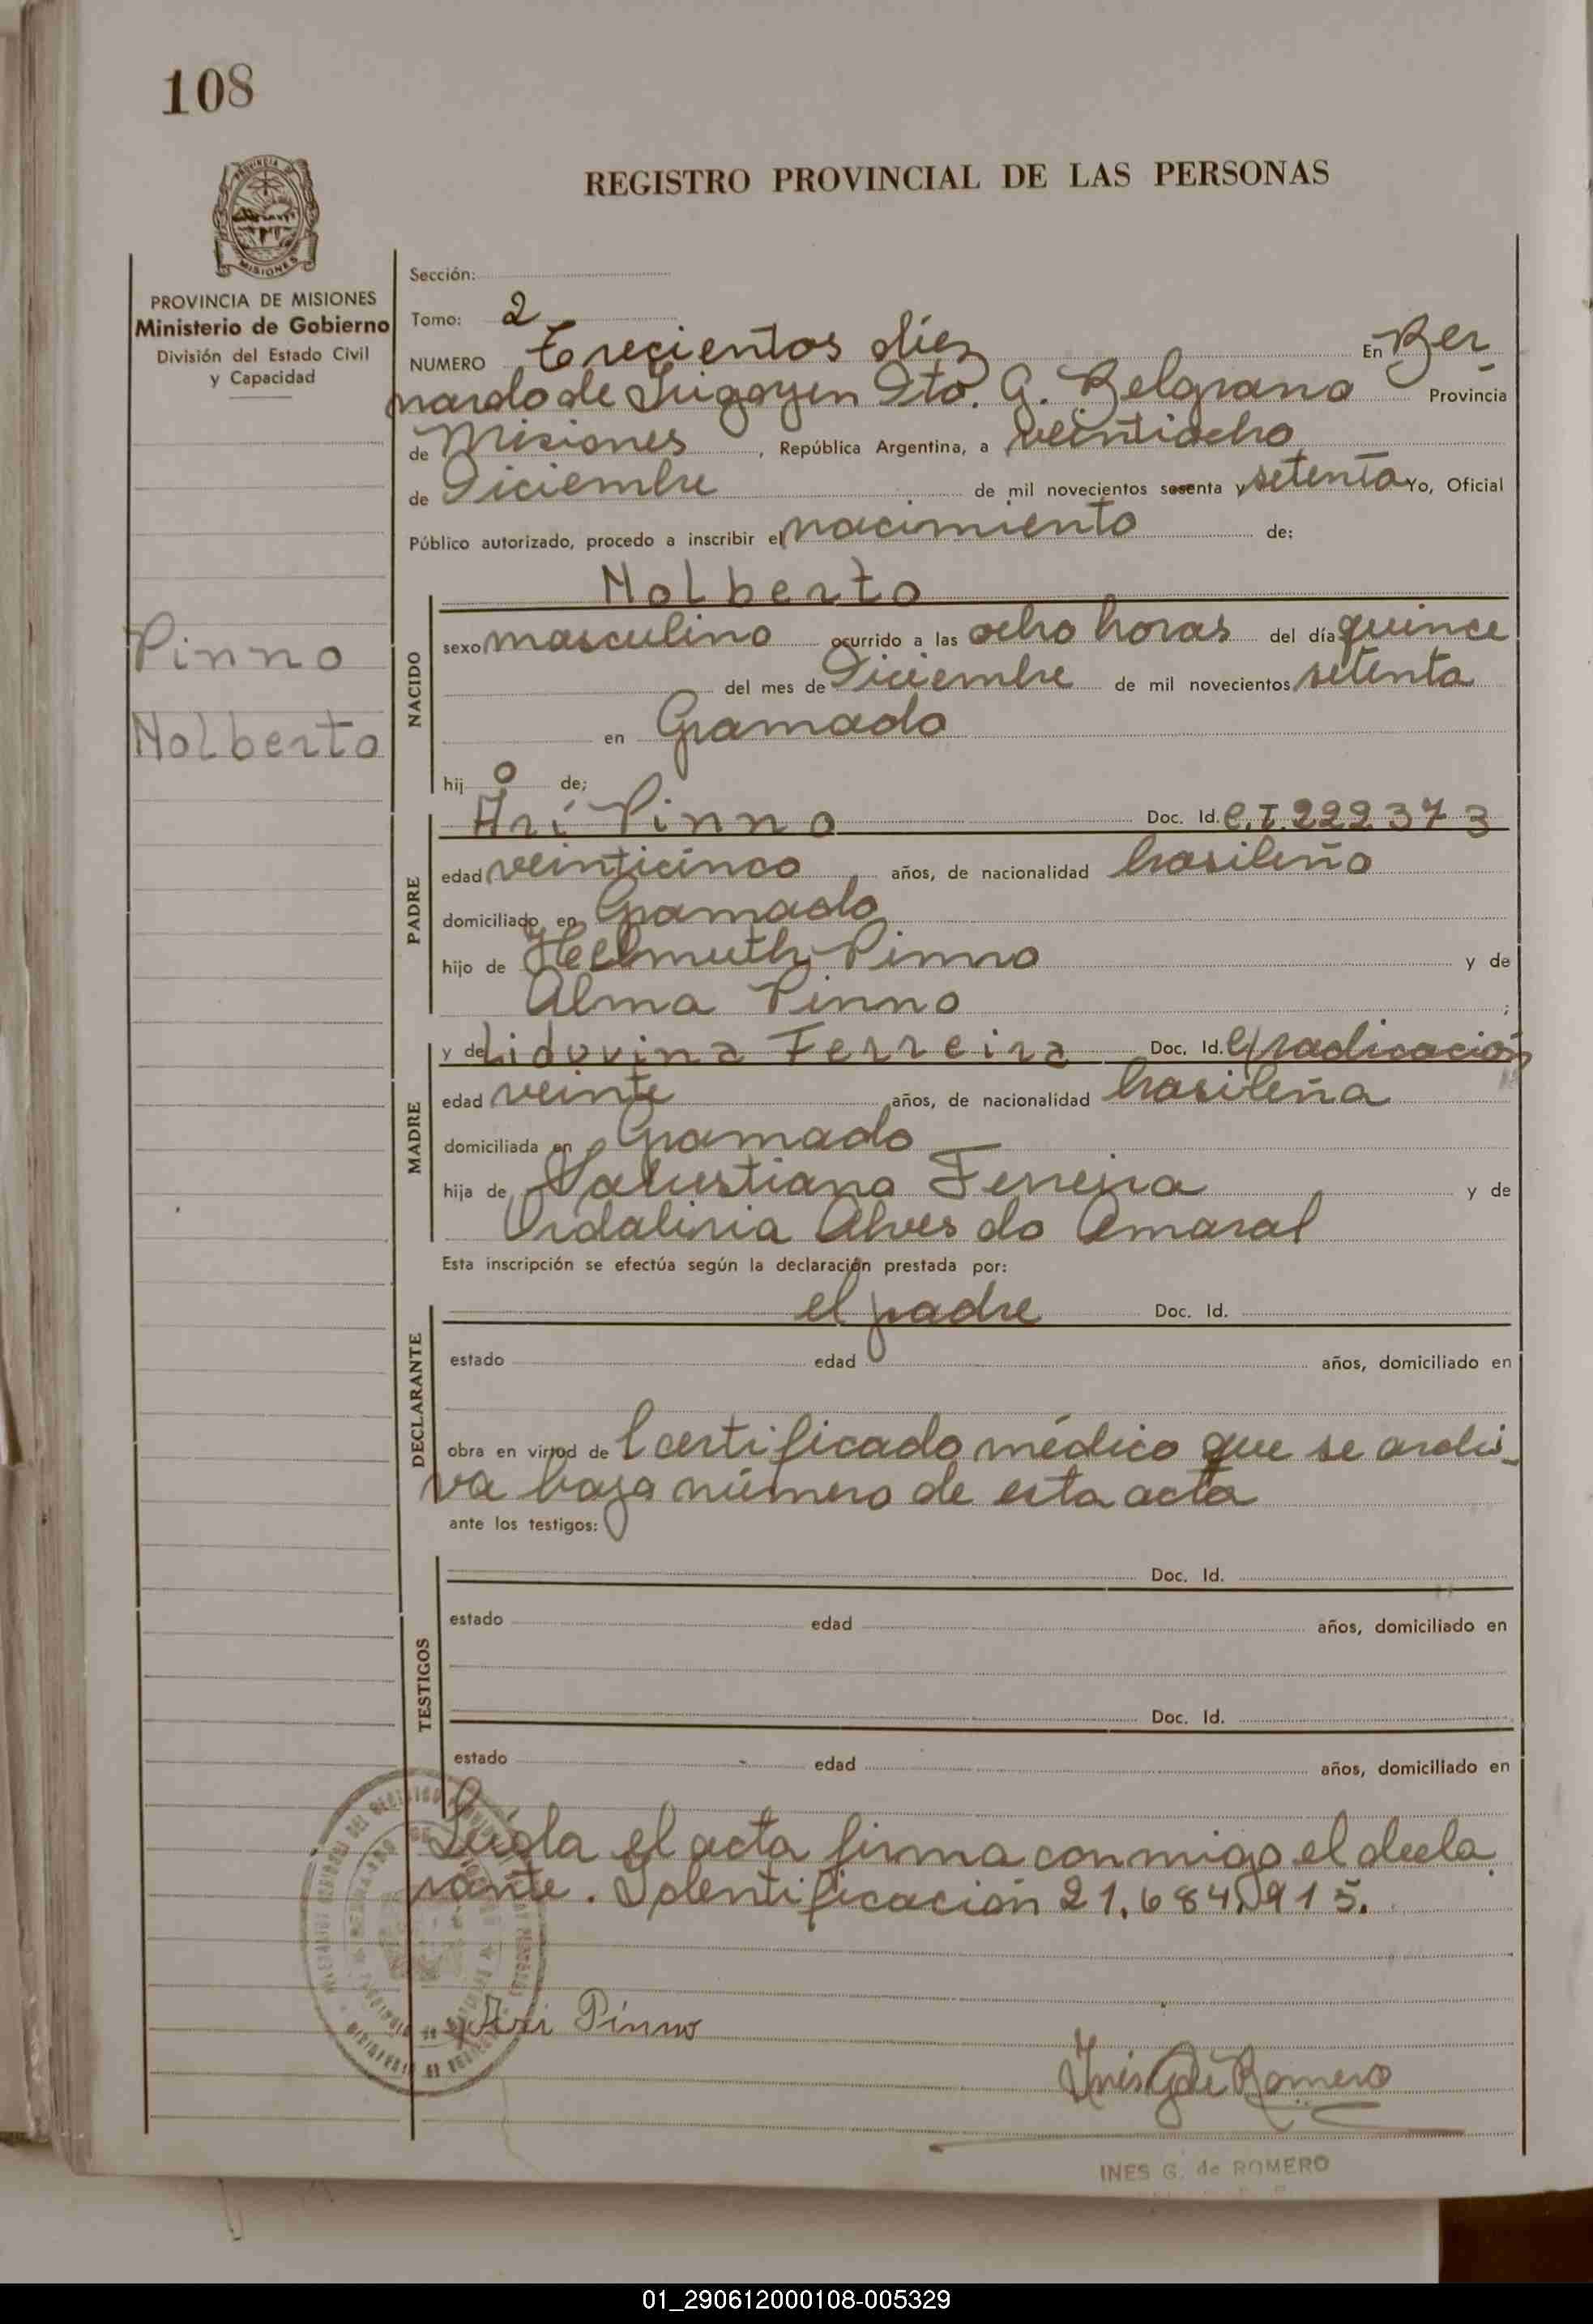 108
REGISTRO PROVINCIAL DE LAS PERSONAS
PROVINCIA DE MISIONES
Ministerio de Gobierno
División del Estado Civil
y Capacidad
Pinno
Nolberto
Sección:
Tomo: 2
NUMERO Trecientos diez En Ber-
nardo de Irigoyen Dto. G. Belgrano Provincia
de Misiones, República Argentina, a veintiocho
de Diciembre de mil novecientos sesenta y setenta Yo, Oficial
Público autorizado, procedo a inscribir el nacimiento de:
NACIDO
Nolberto
sexo masculino ocurrido a las ocho horas del día quince
del mes de Diciembre de mil novecientos setenta
en Gramado
hij o de;
PADRE
Arí Pinno Doc. Id. C.I. 222.373
edad veinticinco años, de nacionalidad brasileño
domiciliado en Gramado
hijo de Helmuth Pinno y de
Alma Pinno ;
MADRE
y de Lidovina Ferreira Doc. Id. C/radicación
edad veinte años, de nacionalidad brasileña
domiciliada en Gramado
hija de Salustiano Ferreira y de
Alves do Amaral
Esta inscripción se efectúa según la declaración prestada por:
DECLARANTE
el padre Doc. Id.
estado edad años, domiciliado en
obra en virtud de l certificado médico que se archi-
va bajo número de esta acta
ante los testigos:
TESTIGOS
Doc. Id.
estado edad años, domiciliado en
Doc. Id.
estado edad años, domiciliado en
Leída el acta firma conmigo el decla
rante. Identificación 21.684.915.
Ari Pinno
Inés G de Romero
INES G. de ROMERO
01_290612000108-005329